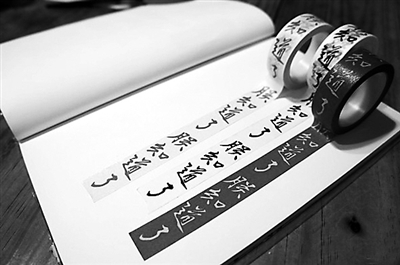 知道了
知道了
知道了
朕知道了朕知道了
朕知道了朕知道了
知道了朕知道了